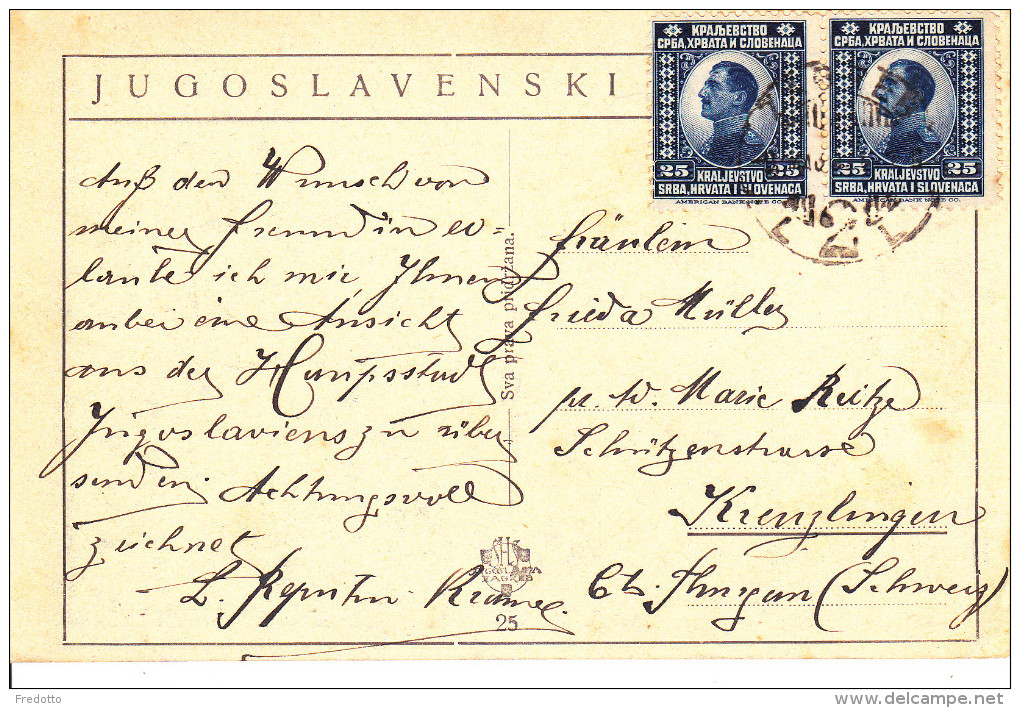 JUGOSLAVENSKI
КРАЉЕВСТВО
СРБА, ХРВАТА И СЛОВЕНАЦА
25 25
KRALJEVSTVO
SRBA, HRVATA I SLOVENACA
AMERICAN BANK NOTE CO.
КРАЉЕВСТВО
СРБА, ХРВАТА И СЛОВЕНАЦА
25 25
KRALJEVSTVO
SRBA, HRVATA I SLOVENACA
AMERICAN BANK NOTE CO.
Auß den Wunsch von
meiner Freundin er-
laube ich mir, Ihnen
anbei eine Ansicht
aus der
Jugoslaviens zu über
senden. Achtungsvoll
zeichnet
L.
Sva prava pridržana.
Fräulein
Frieda Müller
pr. Ad. Marie Reitze
Schützenstrasse
Kreuzlingen
Ct. Thurgau (Schweiz)
ZAGREB
25
Fredotto
www.delcampe.net